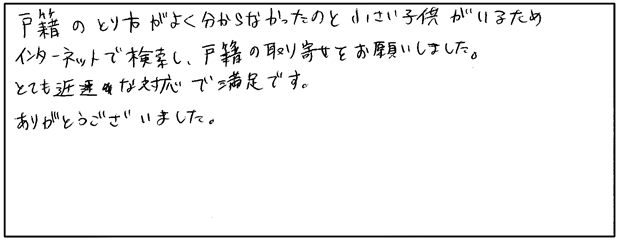 戸籍のとり方がよく分からなかったのと小さい子供がいるため
インターネットで検索し、戸籍の取り寄せをお願いしました。
とても迅速な対応で満足です。
ありがとうございました。